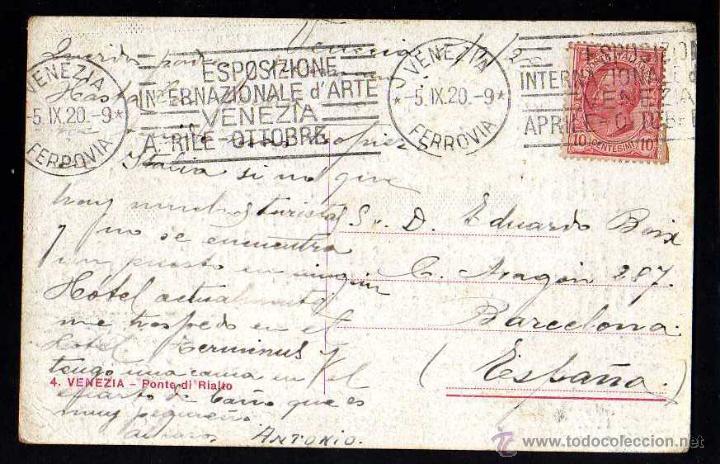 Venezia
VENEZIA
-5.IX.20.-9*
FERROVIA
ESPOSIZIONE
INTERNAZIONALE d'ARTE
VENEZIA
APRILE-OTTOBRE
VENEZIA
*-5.IX.20.-9*
FERROVIA
ESPOSIZION
INTERNAZIONALE d
APRILE-O
10 CENTESIMI 10
Querido padre
Italia si no que
hay muchos turistas
y no se encuentra
un puesto en ningún
Hotel actualmente
me hospedo en el
Hotel Terminus y
tengo una cama en el
cuarto de baño que es
muy pequeño
ANTONIO.
Sr. D. Eduardo Boix
C. Aragón 287
Barcelona
(España)
4. VENEZIA - Ponte di Rialto
www.todocoleccion.net